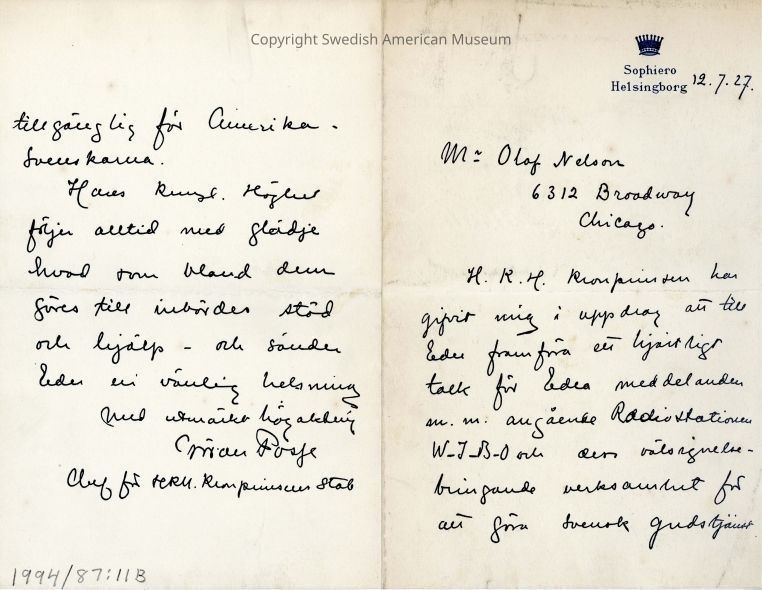 Copyright Swedish American Museum
Sophiero
Helsingborg 12.7.27.
Mr Olof Nelson
6312 Broadway
Chicago.
H. K. H. Kronprinsen har
givit mig i uppdrag att till
Eder framföra ett hjärtligt
tack för Edra meddelanden
m. m. angående Radiostationen
W-I-B-O och dess välsignelse-
bringande verksamhet för
att göra svensk gudstjänst
tillgänglig för Amerika-
svenskarna.
Hans Kungl. Höghet
följer alltid med glädje
hvad som bland dem
göres till inbördes stöd
och hjälp - och sänder
Eder en vänlig helsning
Med utmärkt högaktning
Göran Posse
Chef för HKH. Kronprinsens Stab
1994/87:11B